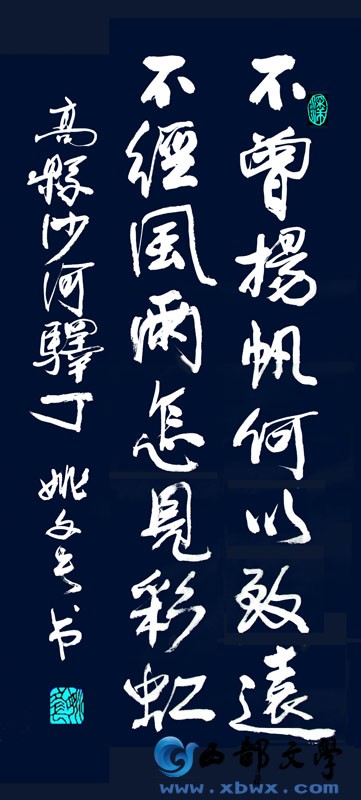 不曾揚帆何以致遠
不經風雨怎見彩虹
高縣沙河驛丁 姚文書
西部文学
www.xbwx.com